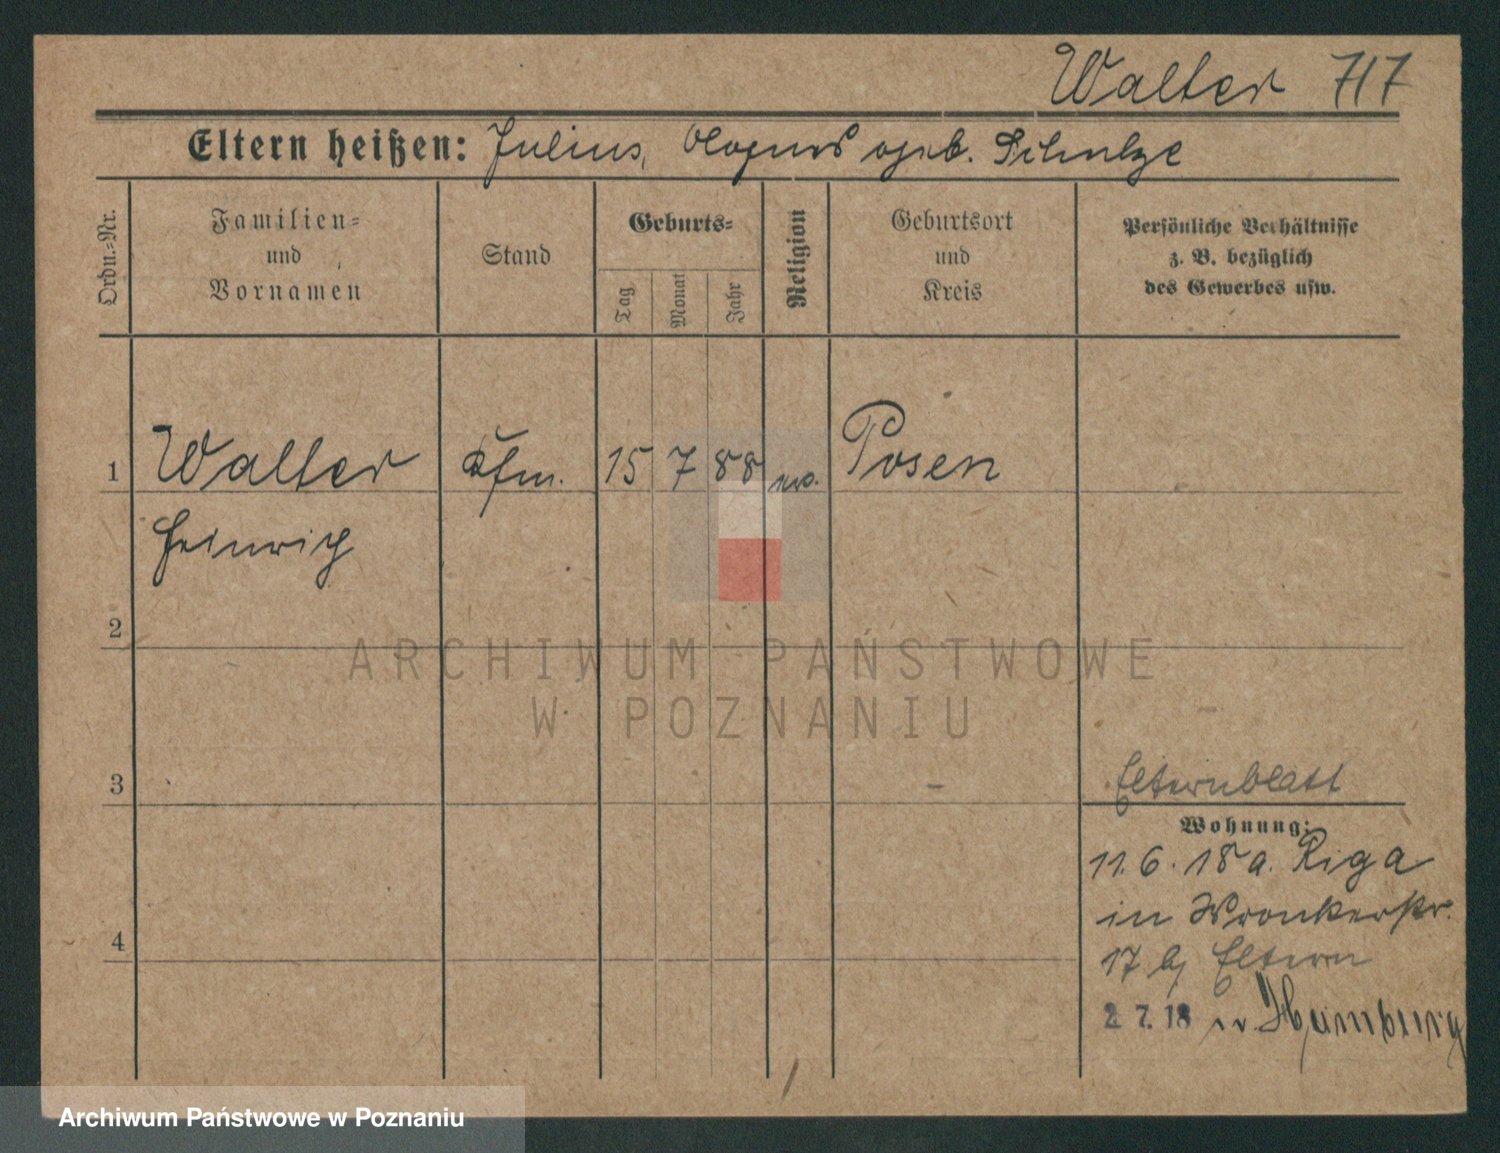 Walter 717
Eltern heißen: Julius, Agnes geb. Schulze
Ordn.-Nr.
Familien-
und
Vornamen
Stand
Geburts-
Tag
Monat
Jahr
Religion
Geburtsort
und
Kreis
Persönliche Verhältnisse
z. B. bezüglich
des Gewerbes usw.
1 Walter Kfm. 15 7 88 Posen
Heinrich
2
3
4
Elternblatt
Wohnung:
11.6.18 a. Riga
in Wronkerstr.
17 b/ Eltern
2. 7. 18 n. Hamburg
ARCHIWUM PAŃSTWOWE
W POZNANIU
Archiwum Państwowe w Poznaniu